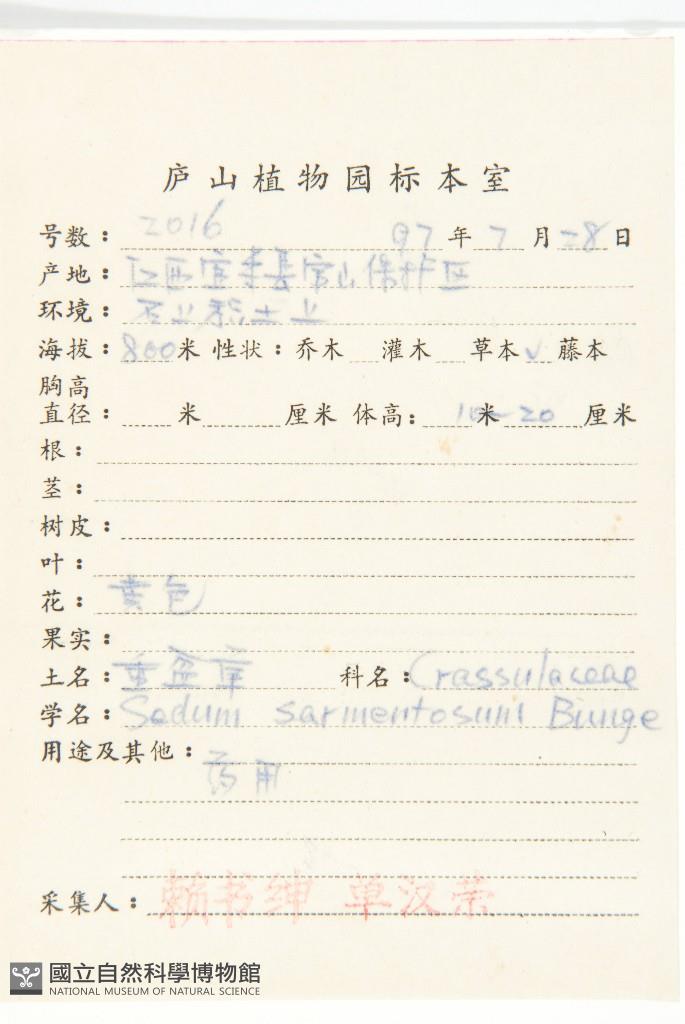 庐山植物园标本室
号数：2016 97年7月28日
产地：江西宜丰县官山保护区
环境：石上积土上
海拔：800米 性状：乔木 灌木 草本√ 藤本
胸高
直径： 米 厘米 体高： 米 10~20 厘米
根：
茎：
树皮：
叶：
花：黄色
果实：
土名：垂盆草 科名：Crassulaceae
学名：Sedum sarmentosum Bunge
用途及其他：药用
采集人：赖书绅 单汉荣
國立自然科學博物館
NATIONAL MUSEUM OF NATURAL SCIENCE